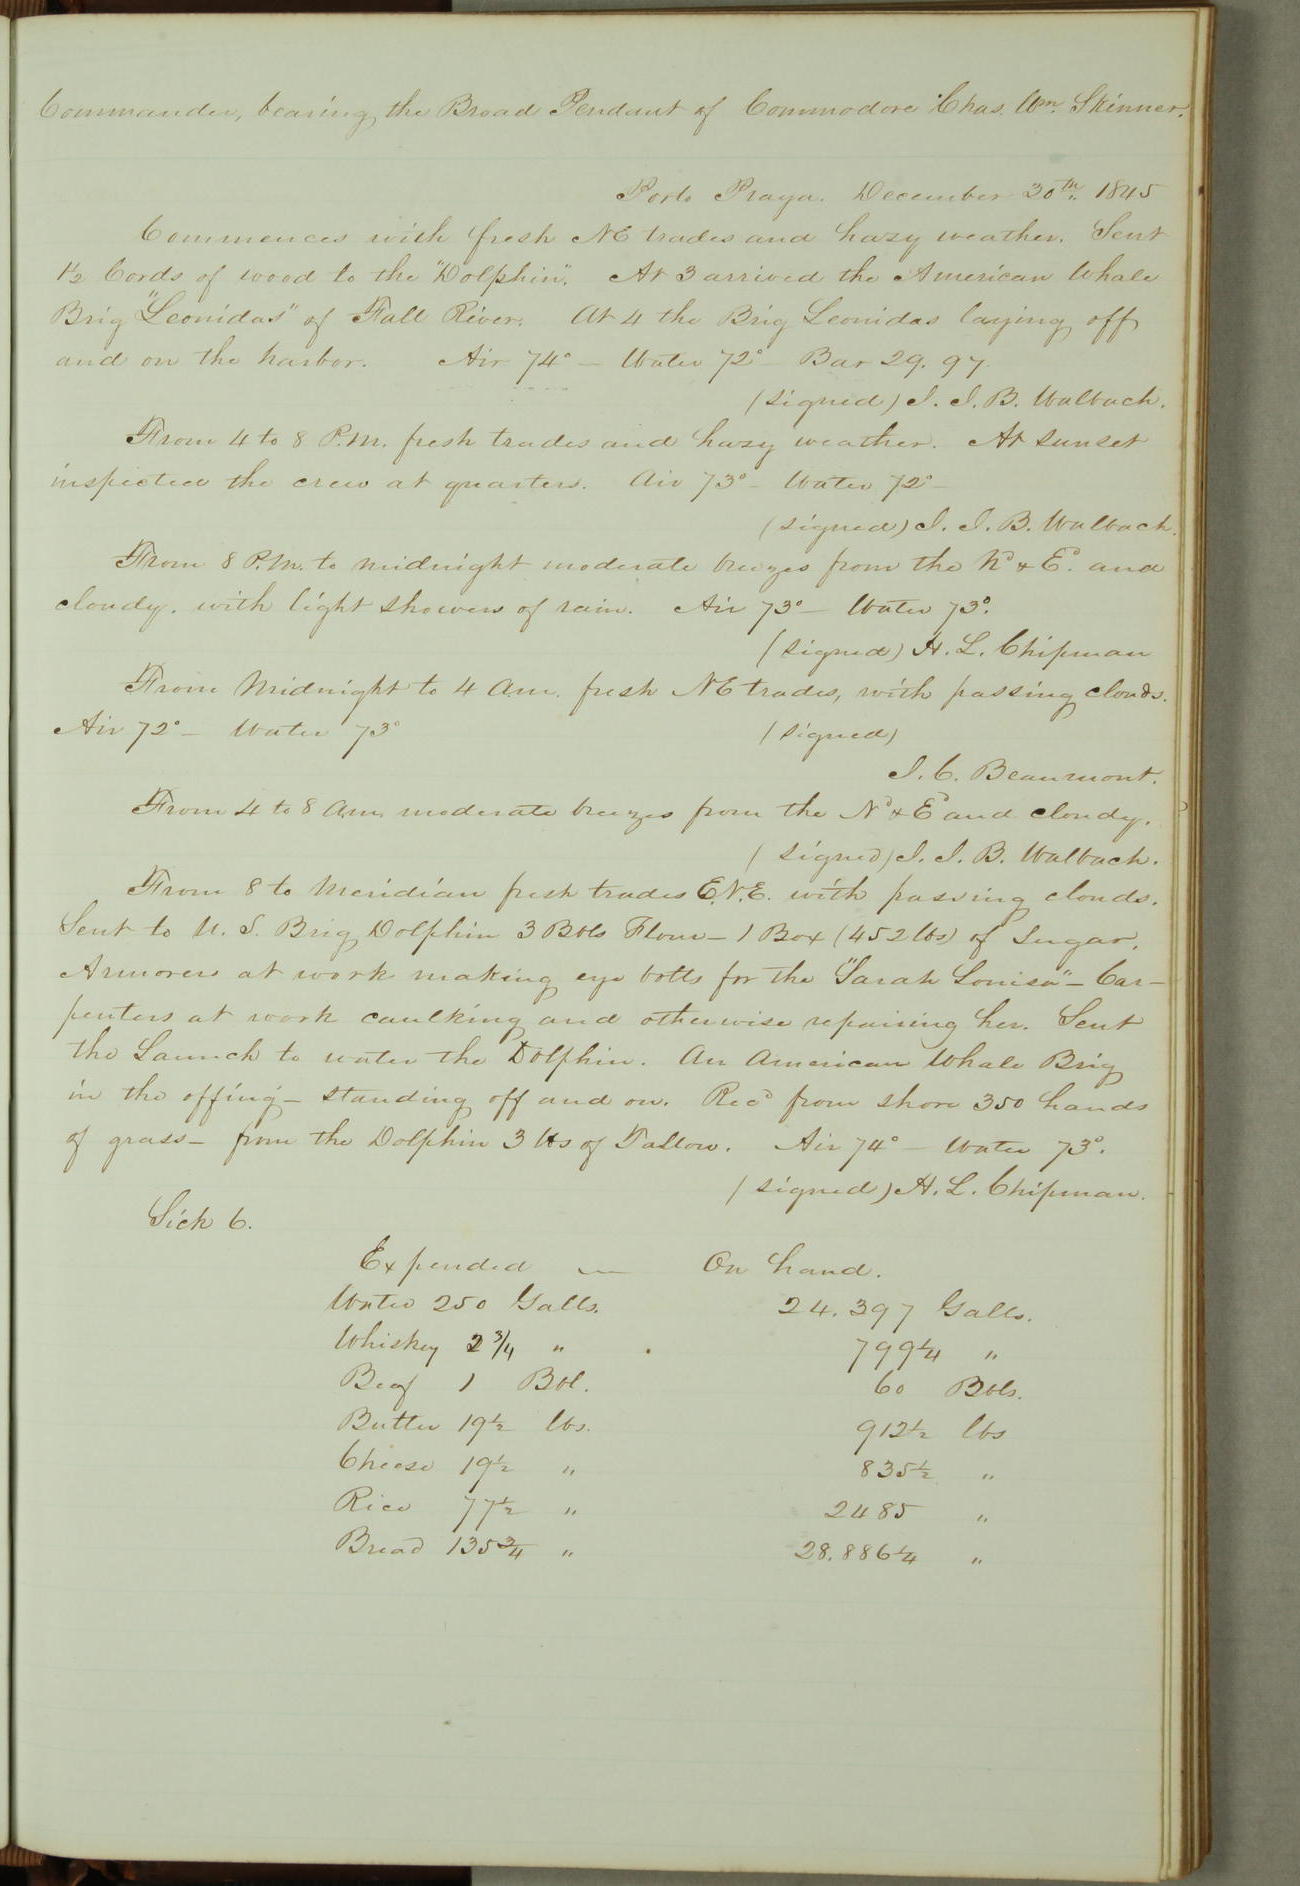 Commander, bearing the Broad Pendant of Commodore Chas. Wm. Skinner.
Porto Praya. December 30th. 1845
Commences with fresh NE trades and hazy weather. Sent
1½ Cords of wood to the "Dolphin". At 3 arrived the American Whale
Brig "Leonidas" of Fall River. At 4 the Brig Leonidas laying off
and on the harbor. Air 74° — Water 72° — Bar 29.97.
(signed) J. J. B. Walbach.
From 4 to 8 P.M. fresh trades and hazy weather. At sunset
inspected the crew at quarters. Air 73° — Water 72° —
(signed) J. J. B. Walbach.
From 8 P.M. to midnight moderate breezes from the Nd & Ed. and
cloudy. with light showers of rain. Air 73° — Water 73°.
(signed) H. L. Chipman
From Midnight to 4 Am. fresh NE trades, with passing clouds.
Air 72° — Water 73° (signed)
J. C. Beaumont.
From 4 to 8 Am. moderate breezes from the Nd & Ed and cloudy.
(signed) J. J. B. Walbach.
From 8 to Meridian fresh trades E.N.E. with passing clouds.
Sent to U. S. Brig Dolphin 3 Bbls Flour — 1 Box (452 lbs) of Sugar.
Armorers at work making eye bolts for the "Sarah Louisa" — Car-
penters at work caulking and otherwise repairing her. Sent
the Launch to water the Dolphin. An American Whale Brig
in the offing — standing off and on. Recd from shore 350 hands
of grass — from the Dolphin 3 lbs of Tallow. Air 74° — Water 73°.
(signed) H. L. Chipman.
Sick 6.
Expended — On hand.
Water 250 Galls. 24.397 Galls.
Whiskey 2 3/4 " 799¼ "
Beef 1 Bbl. 60 Bbls.
Butter 19½ lbs. 912½ lbs
Cheese 19½ " 835½ "
Rice 77½ " 2485 "
Bread 135¾ " 28.886¼ "